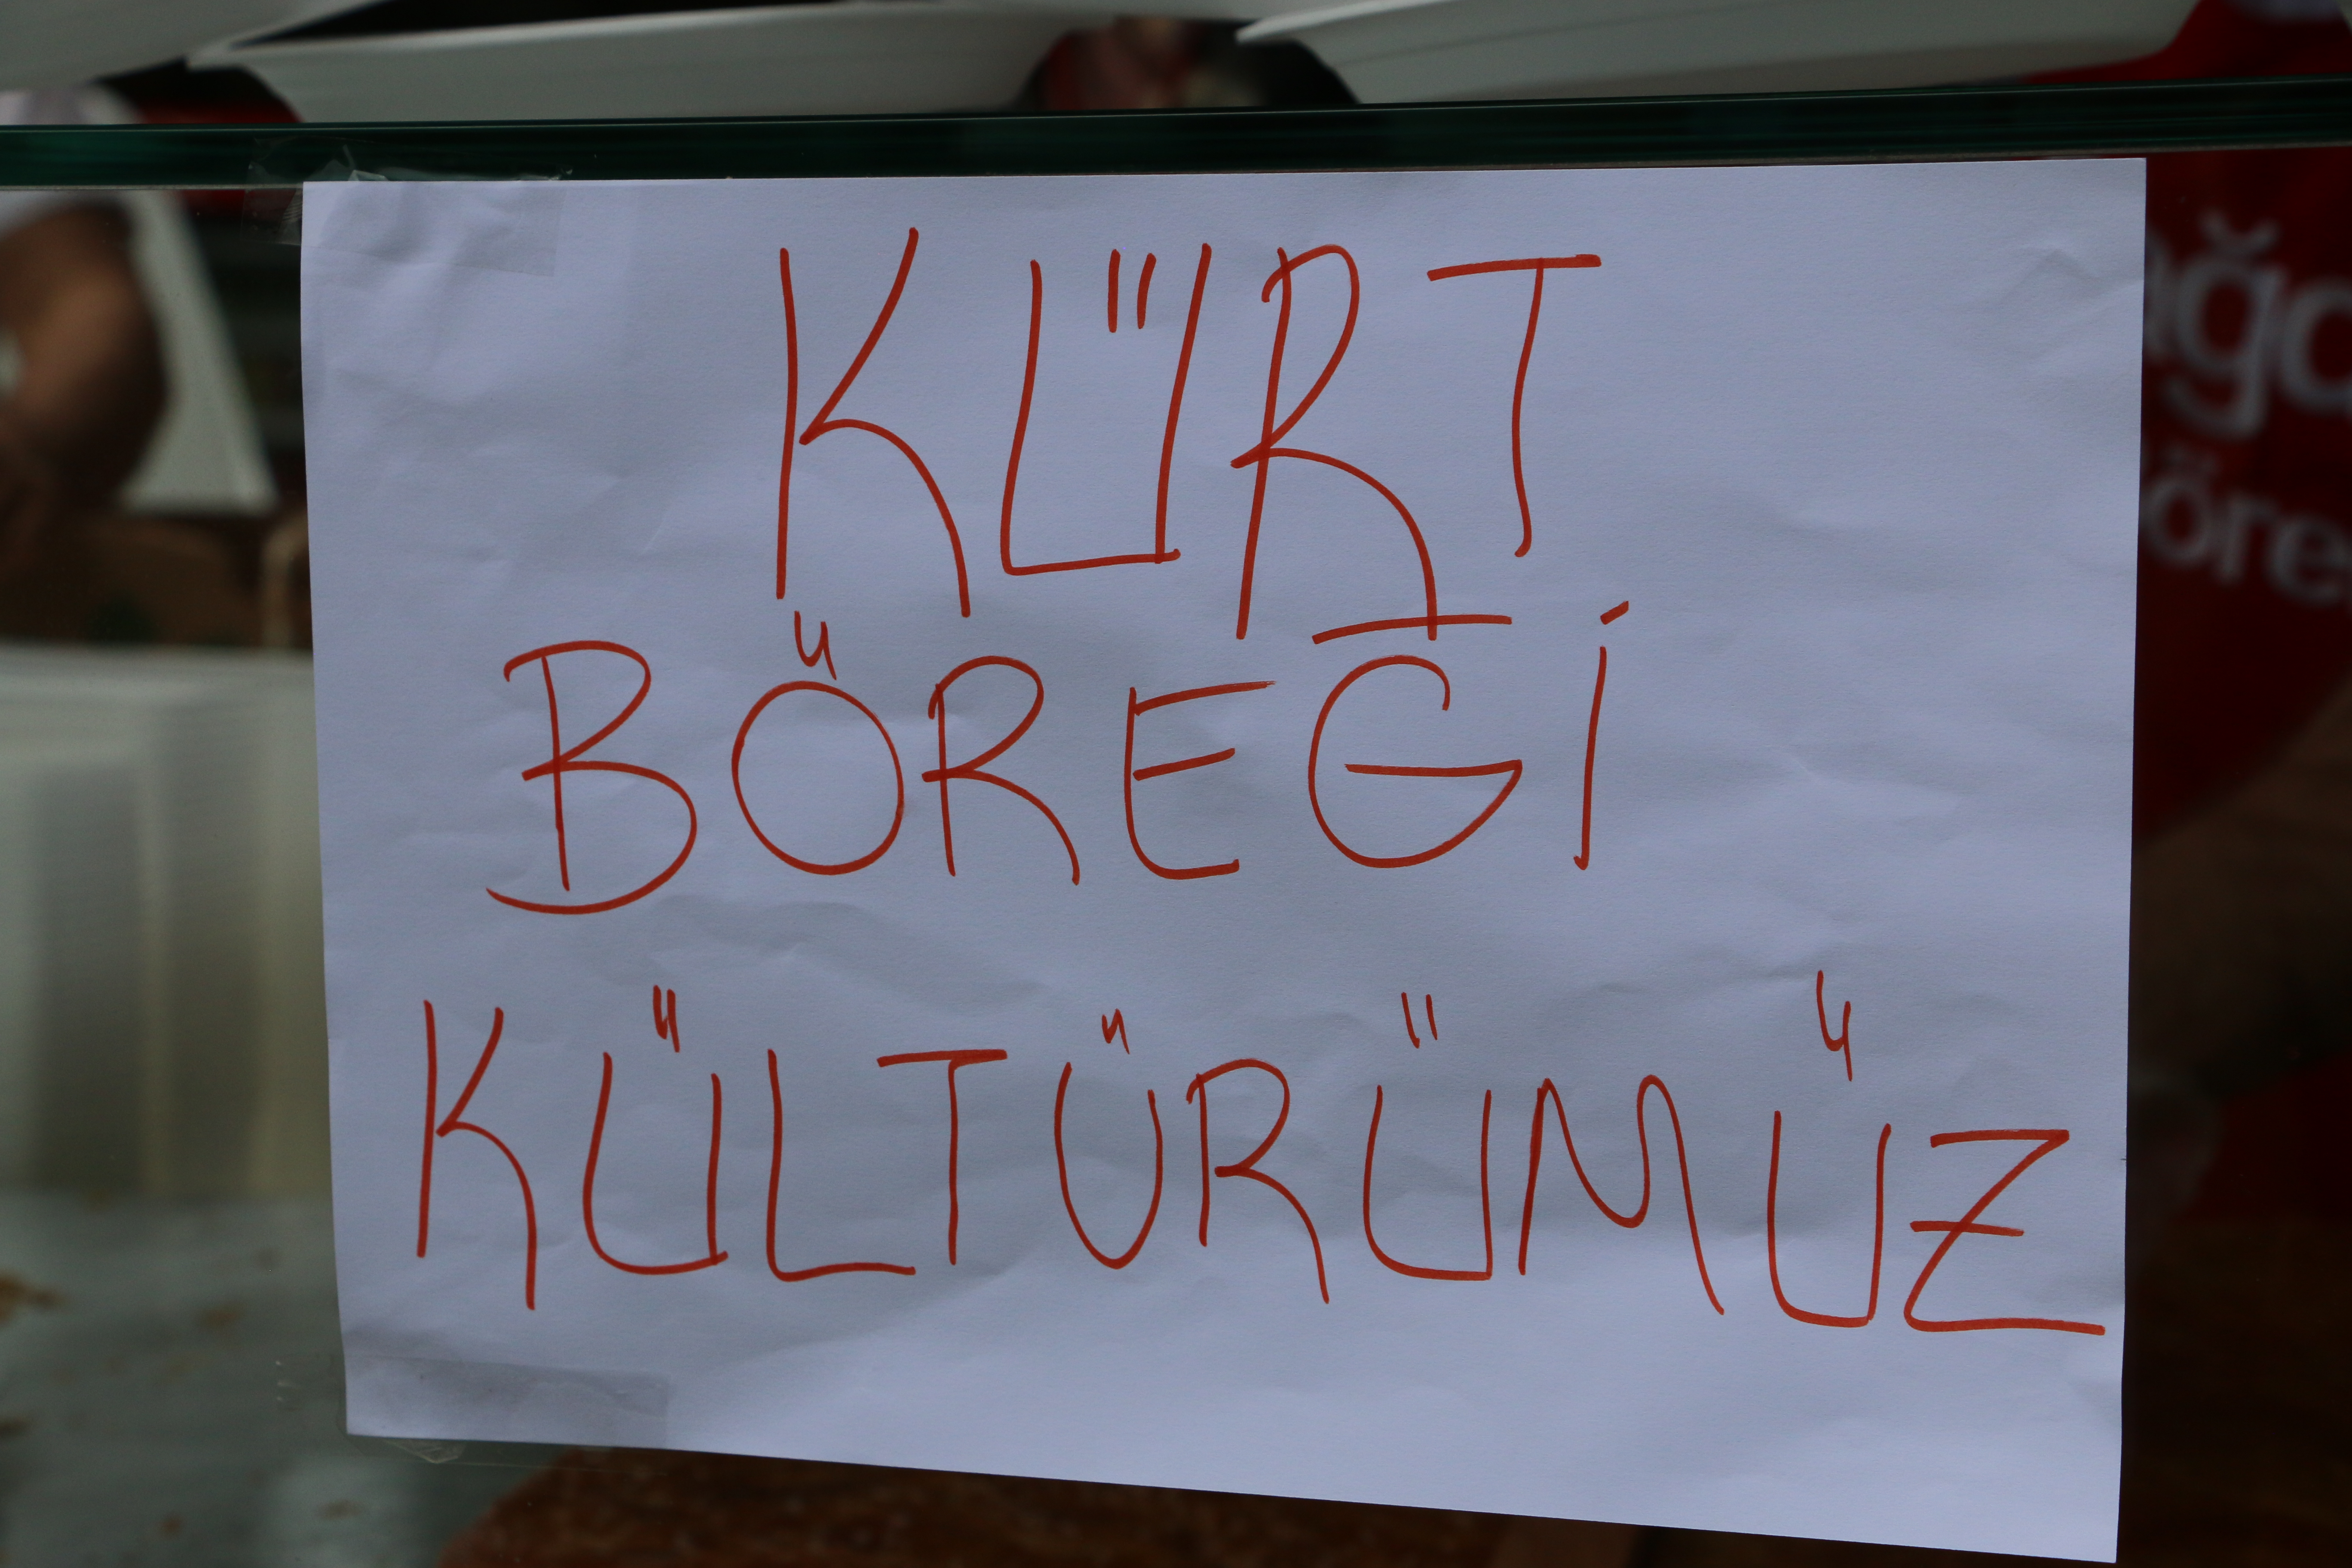 KÜRT
BÖREĞİ
KÜLTÜRÜMÜZ